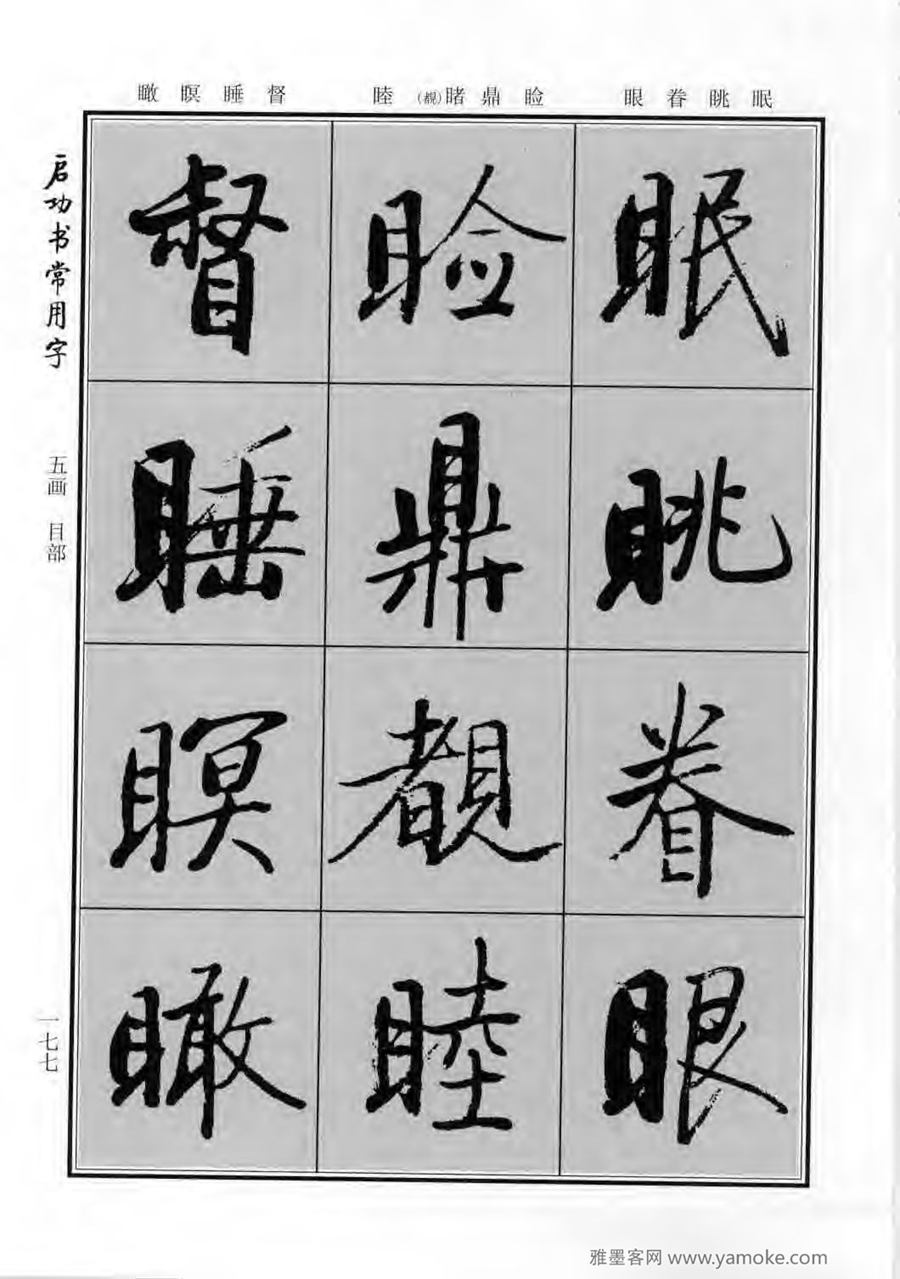 眠眺眷眼
睑鼎睹(覩)睦
督睡瞑瞰
眠眺眷眼
睑鼎覩睦
督睡瞑瞰
启功书常用字
五画 目部
一七七
雅墨客网 www.yamoke.com